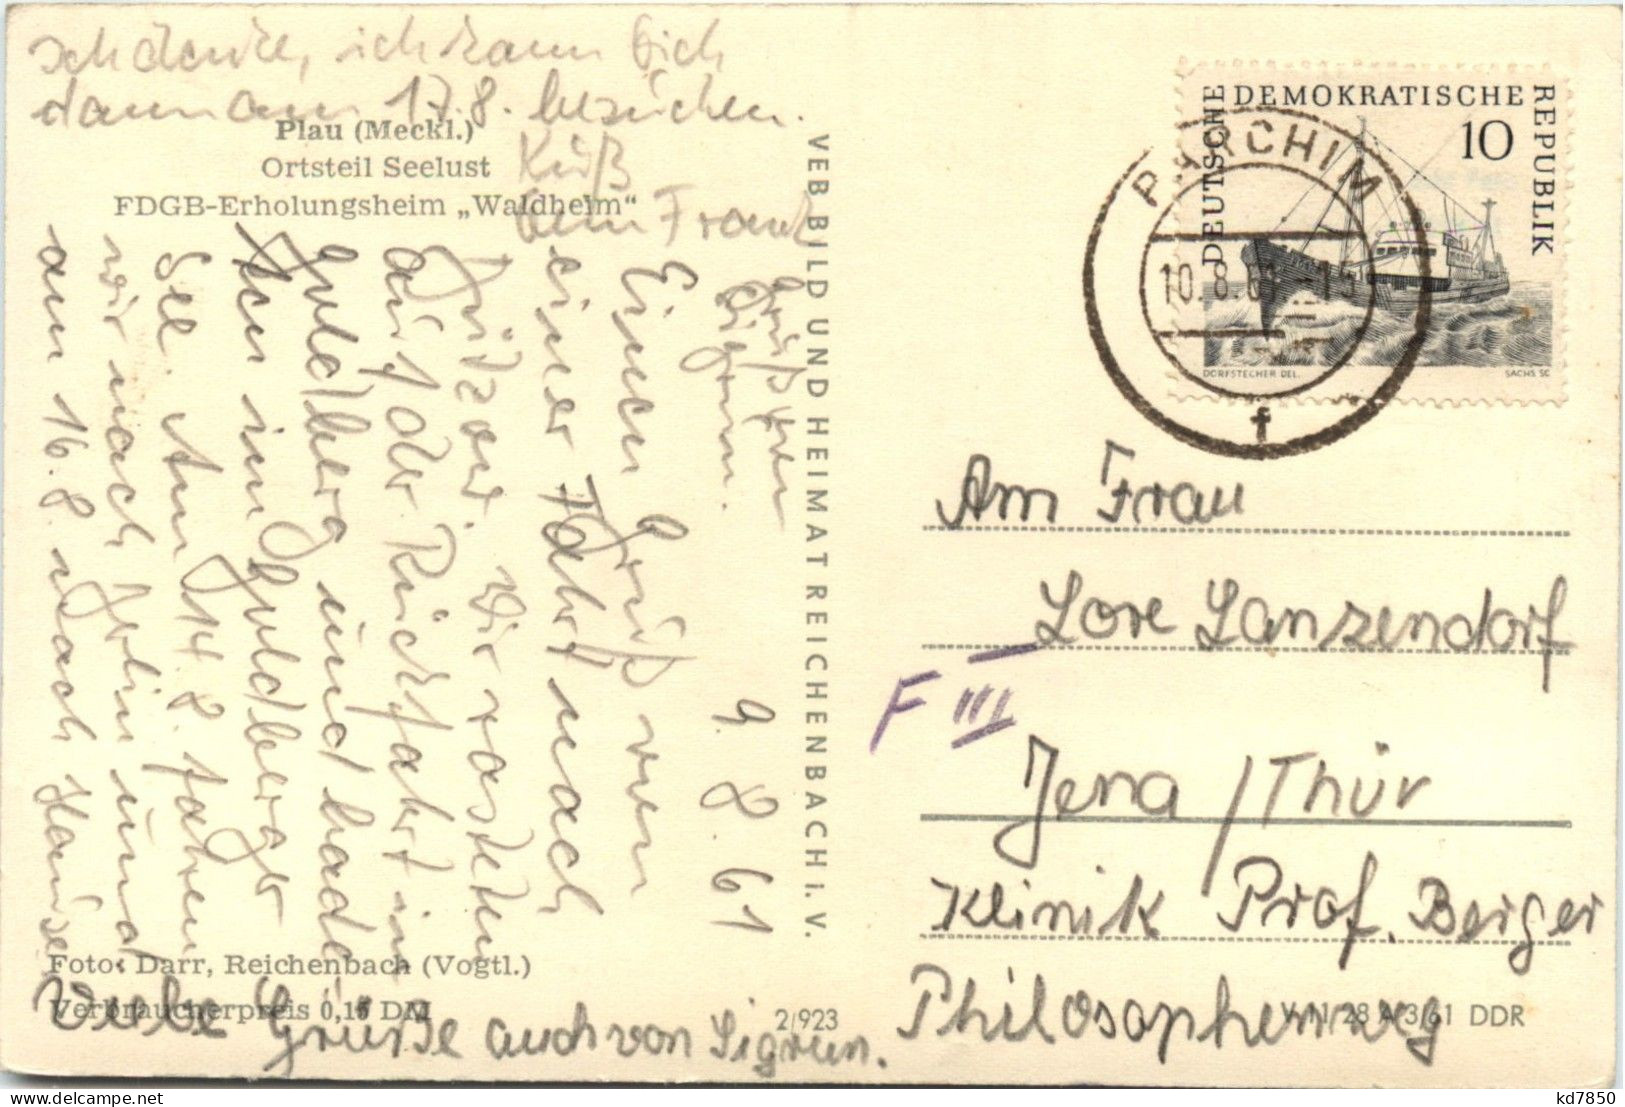 9. 8. 61
Einen Gruß von
einer Fahrt nach
wir rasteten
auf der Rückfahrt in
Goldberg und baden
im Goldberger
See. Am 14. 8. fahren
wir nach Berlin und
am 16. 8. nach Hause
Ich denke, ich kann Dich
dann am 17. 8. besuchen.
Kuß
Dein Frank
Liebe Grüße auch von Sigrun.
Plau (Meckl.)
Ortsteil Seelust
FDGB-Erholungsheim „Waldheim“
Foto: Darr, Reichenbach (Vogtl.)
Verbraucherpreis 0,15 DM
2/923
VEB BILD UND HEIMAT REICHENBACH I. V.
DEUTSCHE DEMOKRATISCHE REPUBLIK
10
DORFSTECHER DEL.
SACHS SC
PARCHIM
10.8.61
f
Am Frau
Lore Lanzendorf
F III
Jena/Thür
Klinik Prof. Berger
Philosophenweg
V 11/28 A 3/61 DDR
kd7850